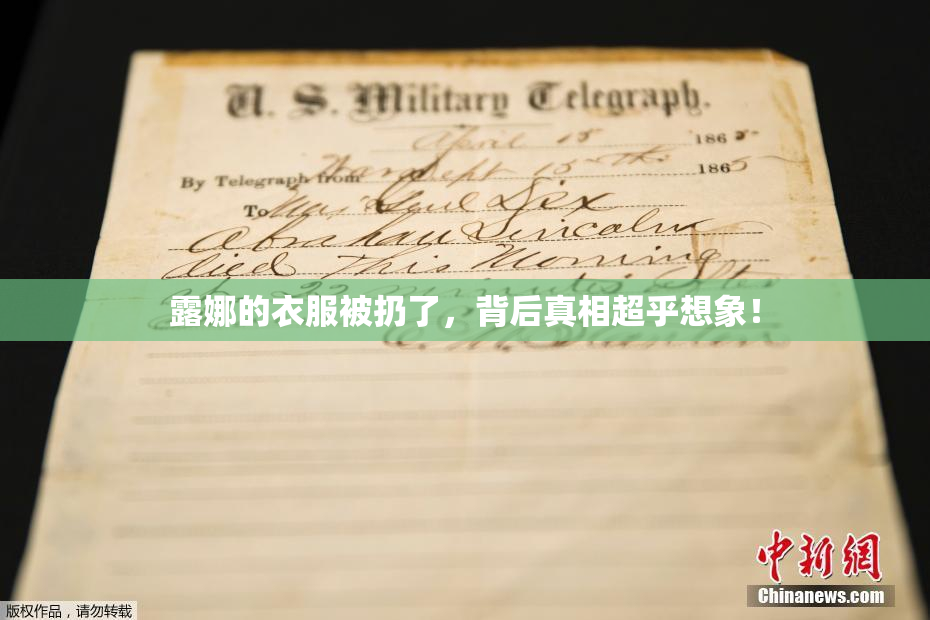 U. S. Military Telegraph.
April 15 1865
By Telegraph from War Dept 15th 1865
To Maj Genl Dix
Abraham Lincoln
died This Morning
at 22 minutes after
露娜的衣服被扔了，背后真相超乎想象！
E. M. Stanton
中新网
版权作品，请勿转载
Chinanews.com